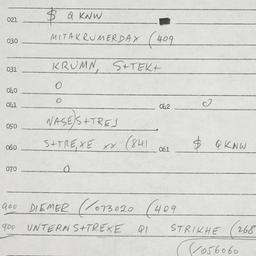 021 $ Q KNW
030 MITAKRUMERDAX (409
031 KRUMN, S+TEK+
040 O
041 O 042 O
050 NASE)S+TREJ
060 S+TRE,XE XX (841 061 $ QKNW
070 O
900 DIEMER (/073020 (409
900 UNTERNS+TREXE Q1 STRIKHE (268
(/056060